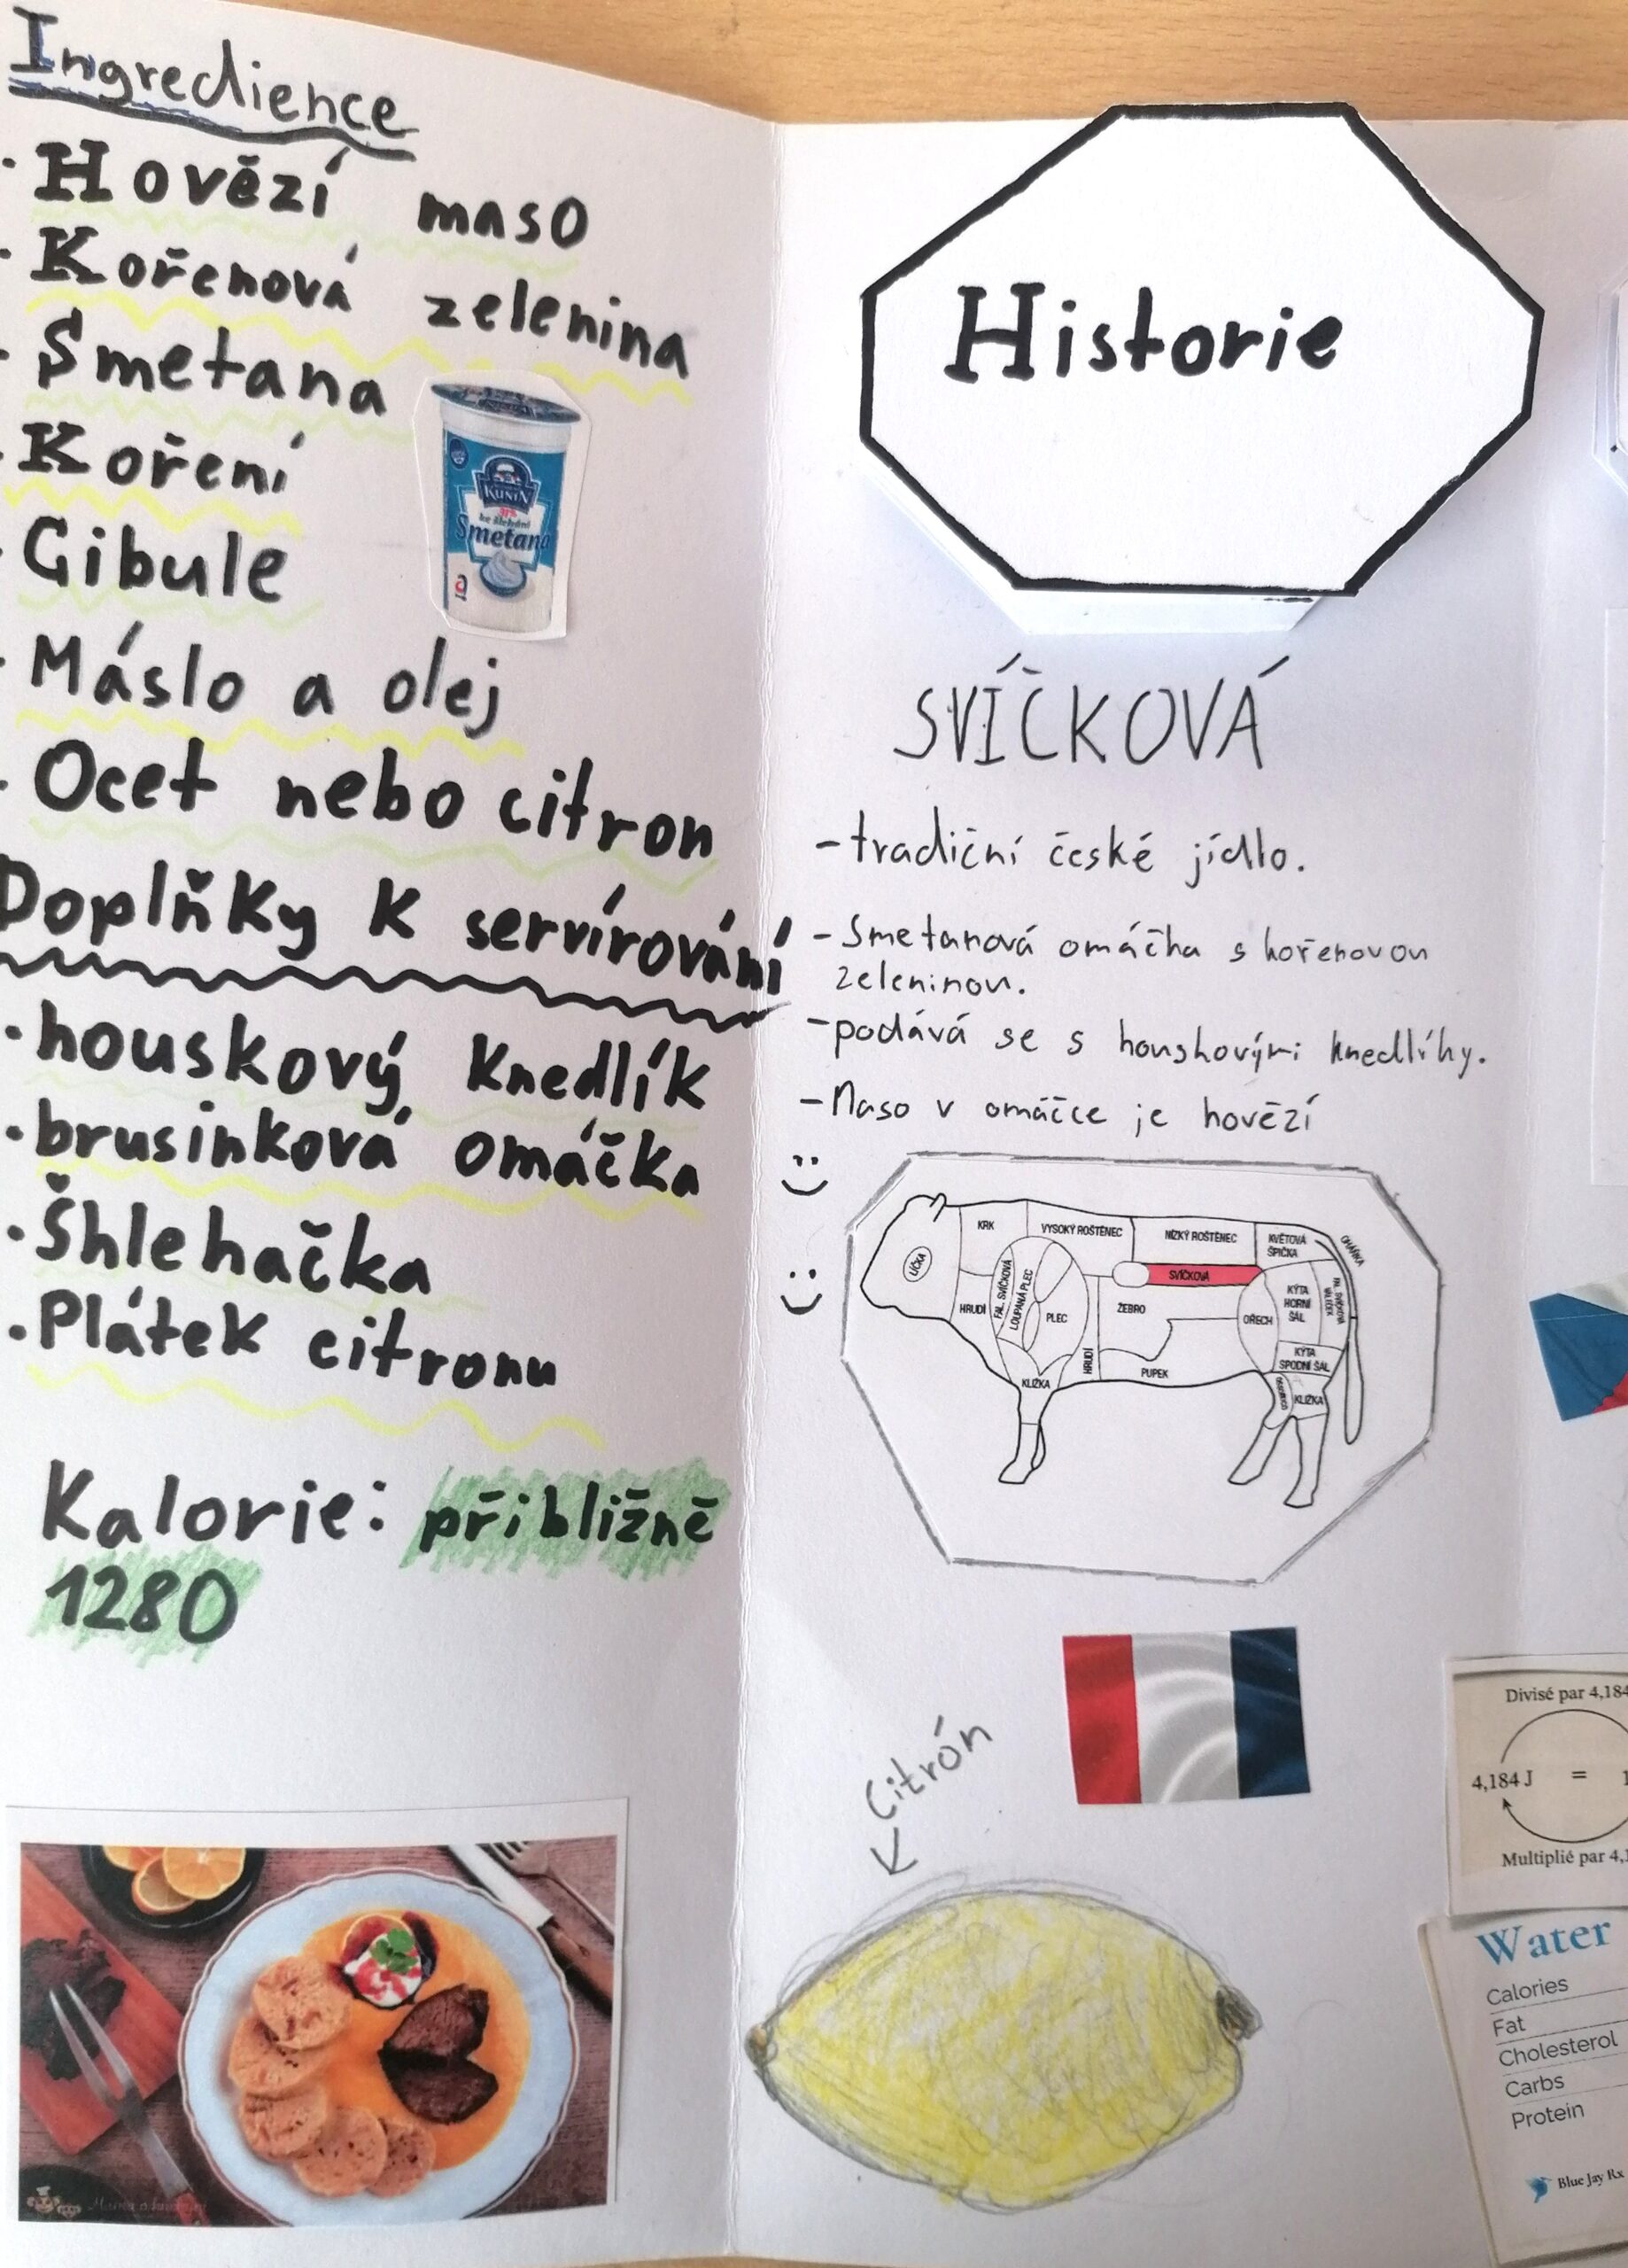 Ingredience
· Hovězí maso
· Kořenová zelenina
· Smetana
· Koření
· Cibule
· Máslo a olej
· Ocet nebo citron
Doplňky k servírování
· houskový knedlík
· brusinková omáčka
· Šhlehačka
· Plátek citronu
Kalorie: přibližně
1280
KUNÍN
31%
ke šlehání
Smetana
Historie
SVÍČKOVÁ
- tradiční české jídlo.
- Smetanová omáčka s kořenovou
zeleninou.
- podává se s houskovými knedlíky.
- Maso v omáčce je hovězí
LÍČKA
KRK
VYSOKÝ ROŠTĚNEC
NÍZKÝ ROŠTĚNEC
KVĚTOVÁ
ŠPIČKA
OHÁŇKA
SVÍČKOVÁ
HRUDÍ
FAL. SVÍČKOVÁ
LOUPANÁ PLEC
PLEC
ŽEBRO
OŘECH
KÝTA
HORNÍ
ŠÁL
KÝTA
SPODNÍ ŠÁL
HRUDÍ
KLIŽKA
PUPEK
KLIŽKA
Citrón
Divisé par 4,184
4,184 J =
Multiplié par 4,1
Water
Calories
Fat
Cholesterol
Carbs
Protein
Blue Jay Rx